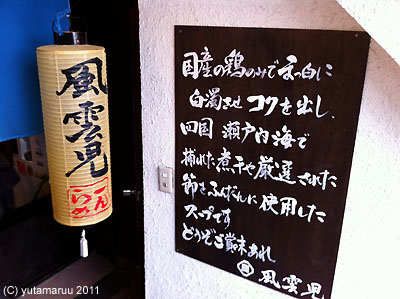 風雲児
らーめん
国産の鶏のみで真っ白に
白濁させ コクを出し、
四国 瀬戸内海で
捕れた煮干や厳選された
節をふんだんに使用した
スープです
どうぞご賞味あれ
風雲児
(C) yutamaruu 2011